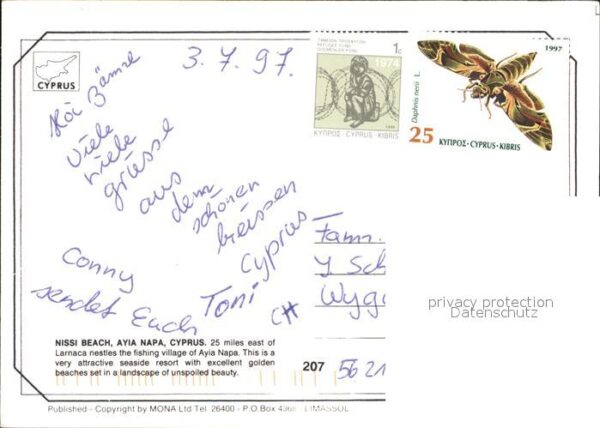 CYPRUS
3.7.97.
ΤΑΜΕΙΟΝ ΠΡΟΣΦΥΓΩΝ
REFUGEE FUND
GÖÇMENLER FONU
1c
1974
ΚΥΠΡΟΣ CYPRUS KIBRIS
1997
Daphnis nerii L.
25 ΚΥΠΡΟΣ·CYPRUS·KIBRIS
Hoi Zäme
Viele
viele
grüsse
aus
dem
schönen
heissen
Cyprus
Conny
sendet Euch Toni
Fam.
Y Sch
Wyg
CH
562
privacy protection
Datenschutz
NISSI BEACH, AYIA NAPA, CYPRUS. 25 miles east of
Larnaca nestles the fishing village of Ayia Napa. This is a
very attractive seaside resort with excellent golden
beaches set in a landscape of unspoiled beauty.
207
Published - Copyright by MONA Ltd Tel. 26400 - P.O.Box 4368 - LIMASSOL